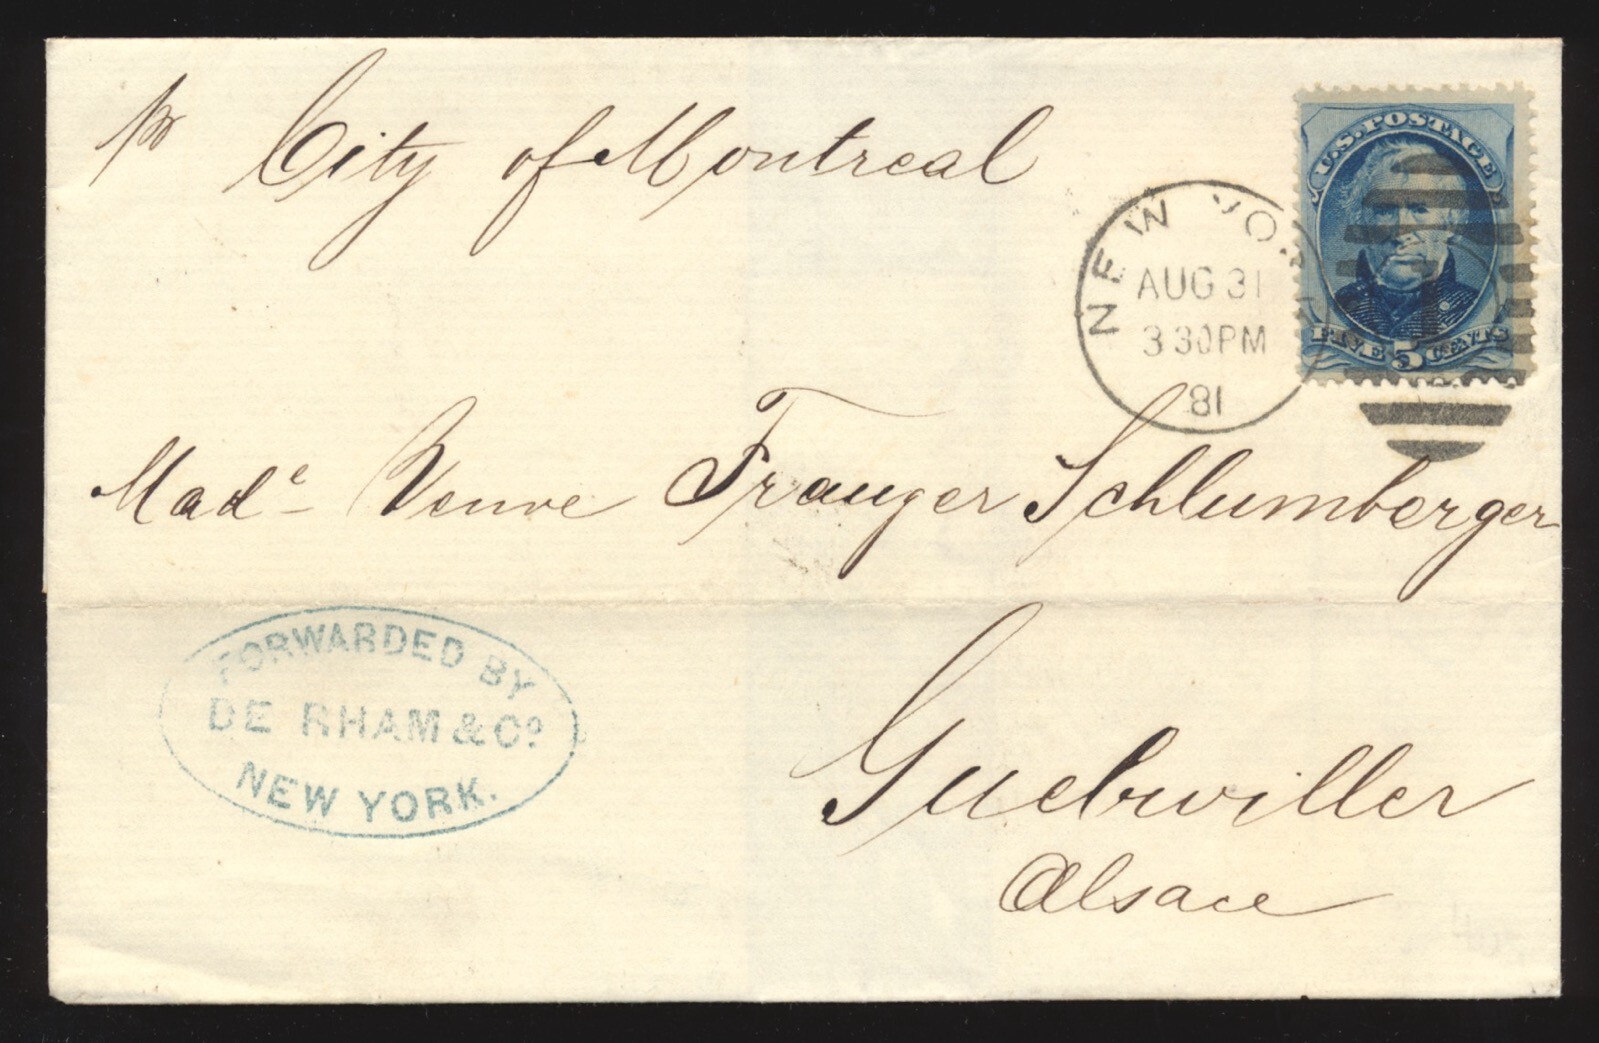 pr City of Montreal
U.S. POSTAGE
FIVE 5 CENTS
NEW YOR
AUG 31
3 30 PM
81
Made Veuve Frauger Schlumberger
FORWARDED BY
DE RHAM & Co
NEW YORK.
Guebwiller
Alsace